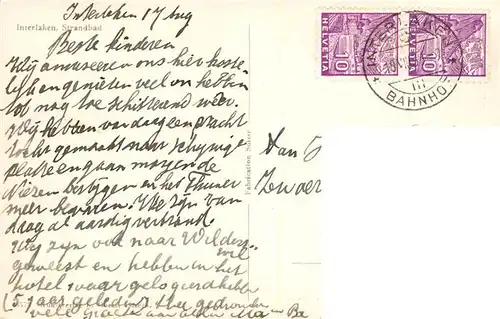 Interlaken 17 Aug
Interlaken, Strandbad
Beste kinderen
Wij amuseeren ons hier
genieten veel en hebben
tot nog toe schitterend weer.
Wij hebben vandaag een pracht
tocht gemaakt naar Schynige
platte en gaan morgen de
Niezen bestygen en het Thuner
meer bevaren. We zijn van
daag al aardig verbrand.
Wij zijn ook naar Wilders
wil
geweest en hebben in het
hotel, waar gelogeerd hebben
(5 jaar geleden) thee gedronken
vele groeten aan allen Ma en Pa
Fabrication Suisse
HELVETIA 10
HELVETIA 10
INTERLAKEN
III
BAHNHO
Aan